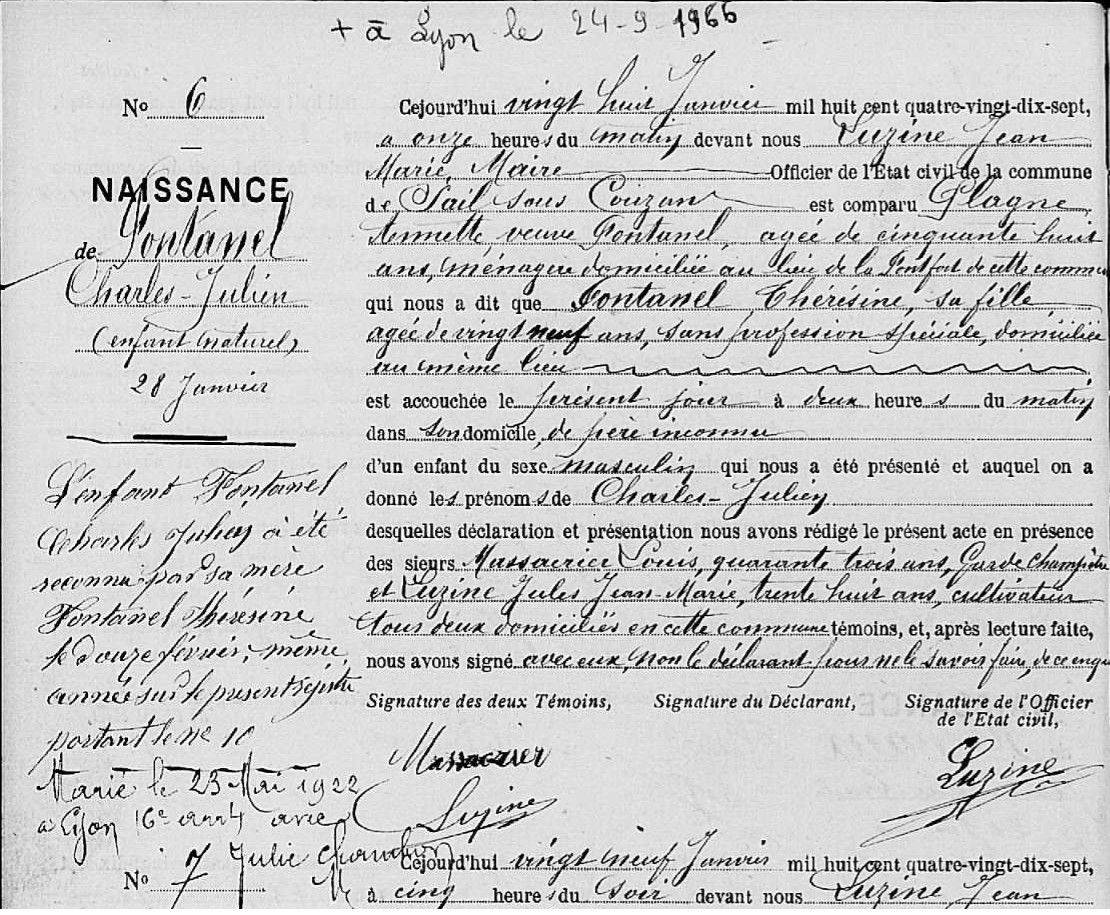 + à Lyon le 24-9-1966
Nº 6
NAISSANCE
de Fontanel
Charles-Julien
(enfant naturel)
28 Janvier
L'enfant Fontanel
Charles Julien a été
reconnu par sa mère
Fontanel Thérésine
le douze février, même
année sur le présent registre
portant le nº 10
Marié le 23 Mai 1922
à Lyon (6e arrt) avec
Julie
Cejourd'hui vingt huit Janvier mil huit cent quatre-vingt-dix-sept,
a onze heures du matin devant nous Luzine Jean
Marie, Maire Officier de l'Etat civil de la commune
de Sail sous Couzan est comparu Plagne
Annette veuve Fontanel, agée de cinquante huit
ans, ménagère domiciliée au lieu de la Pontfort de cette commune
qui nous a dit que Fontanel Thérésine, sa fille
agée de vingt neuf ans, sans profession spéciale, domiciliée
au même lieu
est accouchée le présent jour à deux heures du matin
dans son domicile, de père inconnu
d'un enfant du sexe masculin qui nous a été présenté et auquel on a
donné les prénoms de Charles-Julien
desquelles déclaration et présentation nous avons rédigé le présent acte en présence
des sieurs Massacrier Louis, quarante trois ans, Garde champêtre
et Luzine Jules Jean-Marie, trente huit ans, cultivateur
tous deux domiciliés en cette commune témoins, et, après lecture faite,
nous avons signé avec eux, non le déclarant pour ne le savoir faire, de ce enquis
Signature des deux Témoins, Signature du Déclarant, Signature de l'Officier
de l'Etat civil,
Massacrier
Luzine
Luzine
Nº 7
Cejourd'hui vingt neuf Janvier mil huit cent quatre-vingt-dix-sept,
à cinq heures du soir devant nous Luzine Jean